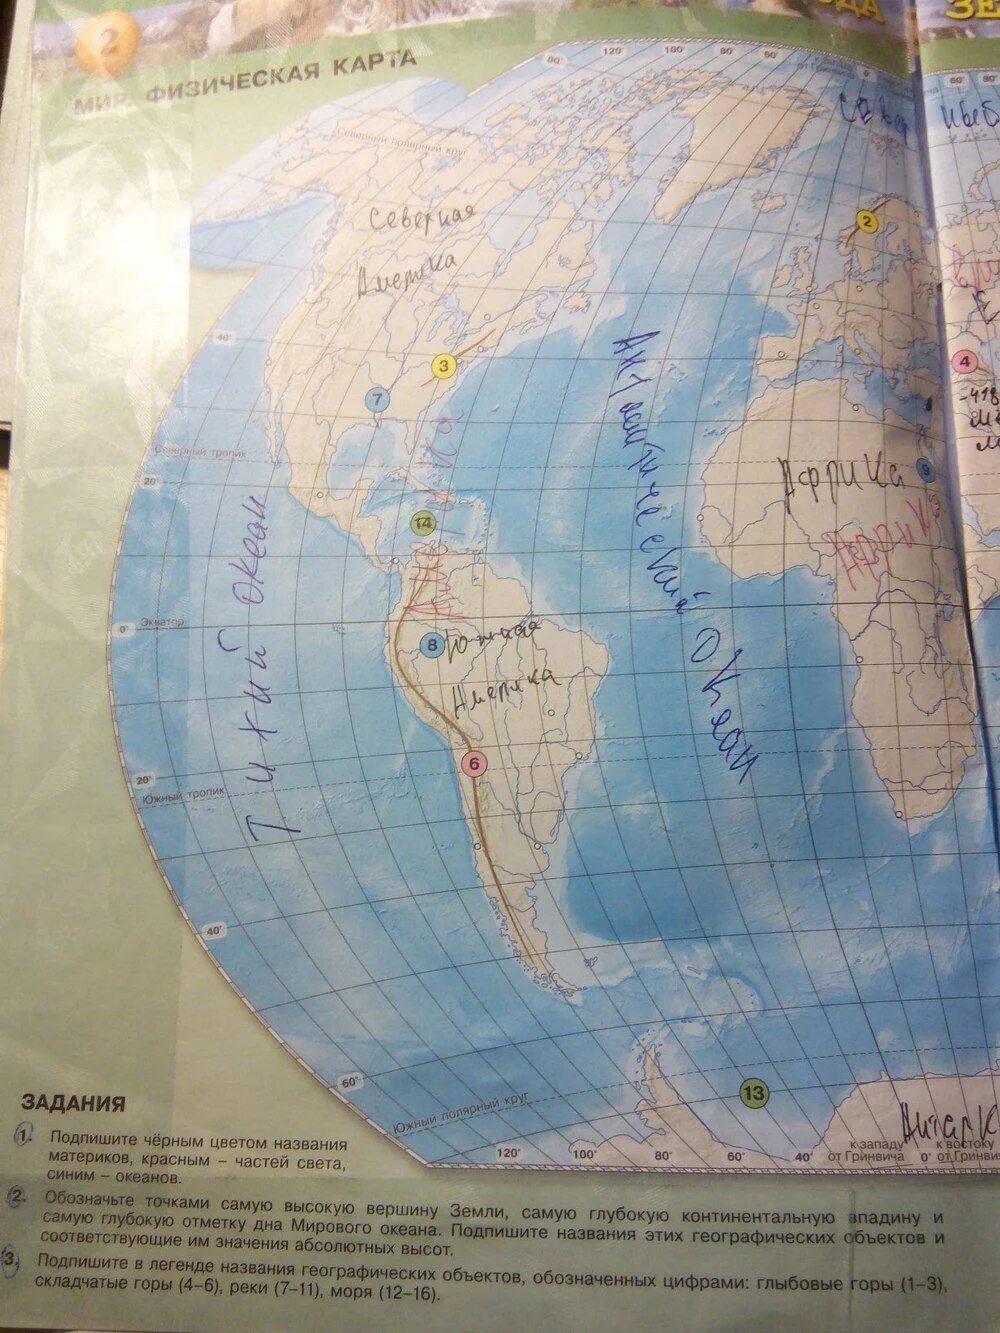 2
МИР. ФИЗИЧЕСКАЯ КАРТА
80° 120° 100° 80° 60°
от Гринвича 0°
60° 80°
Северный полярный круг
2
Северная
Америка
40°
3
4
7
Северный тропик
20°
9
Африка
Африка
14
Америка
Тихий океан
Атлантический океан
Экватор
0°
8
Южная
Америка
6
20°
Южный тропик
40°
60°
13
Южный полярный круг
120° 100° 80° 60° 40° к западу от Гринвича 0° к востоку
Антарк
ЗАДАНИЯ
1. Подпишите чёрным цветом названия
материков, красным – частей света,
синим – океанов.
2. Обозначьте точками самую высокую вершину Земли, самую глубокую континентальную впадину и
самую глубокую отметку дна Мирового океана. Подпишите названия этих географических объектов и
соответствующие им значения абсолютных высот.
3. Подпишите в легенде названия географических объектов, обозначенных цифрами: глыбовые горы (1–3),
складчатые горы (4–6), реки (7–11), моря (12–16).